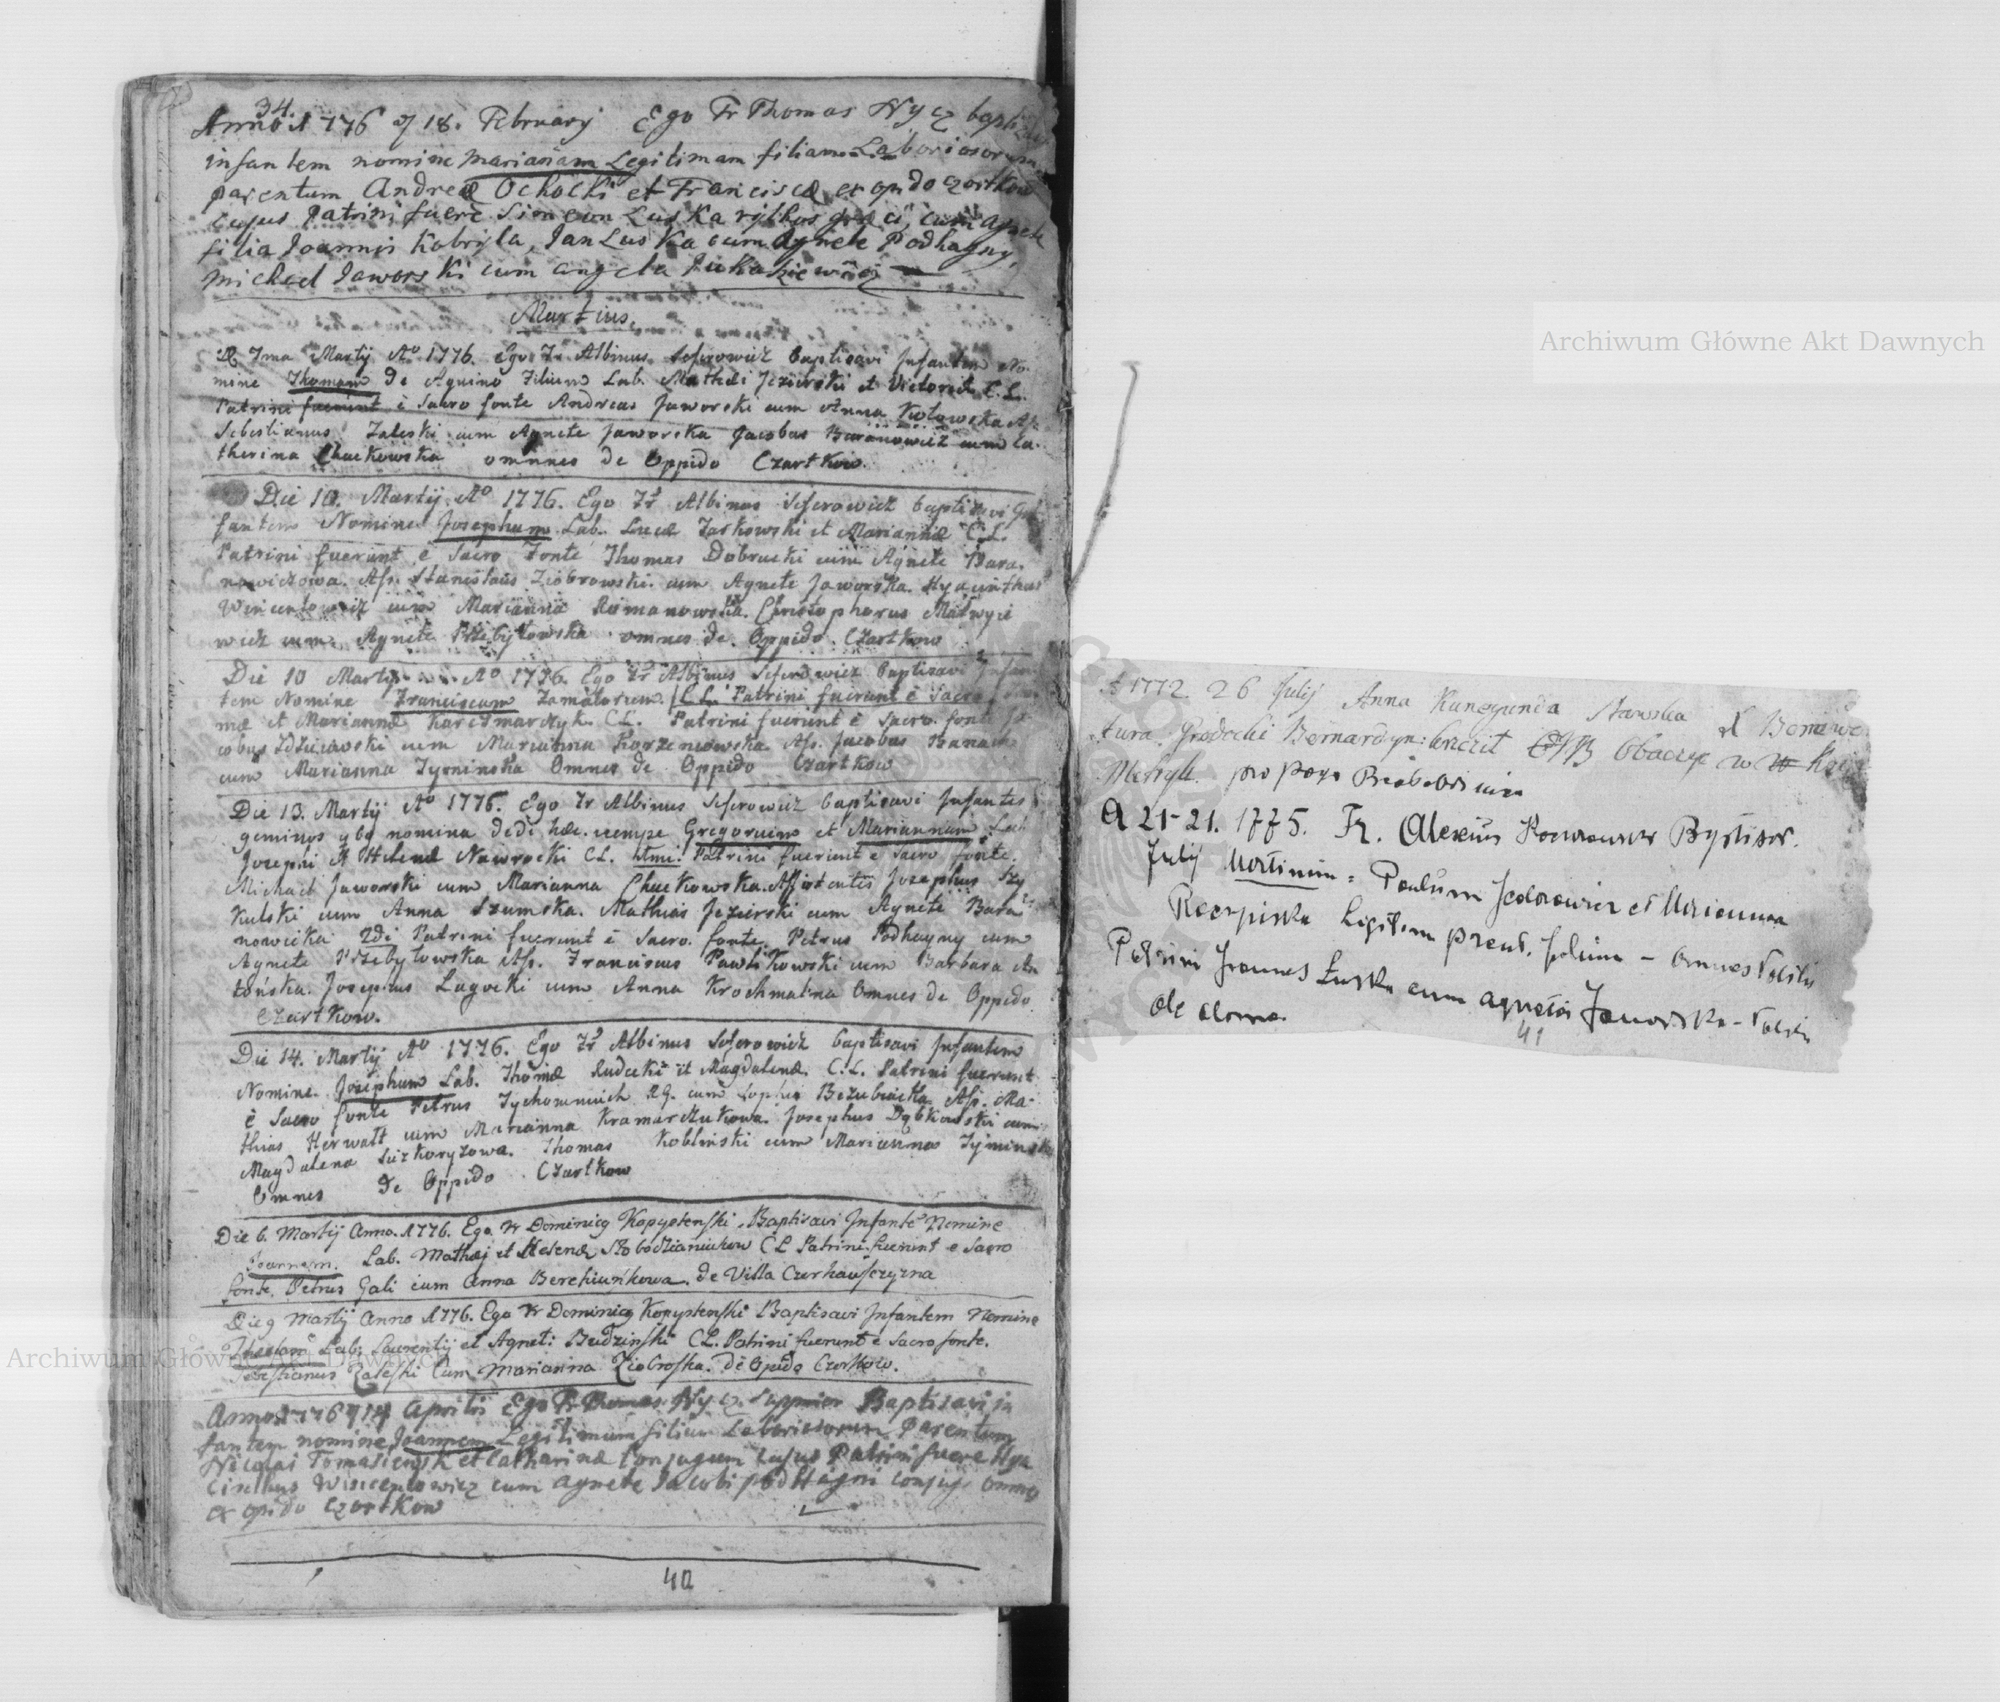 34.
Anno 1776 d 18. February Ego Fr Thomas Nycz baptizavi
infantem nomine Mariañam Legitimam filiam Laboriosorum
parentum Andreæ Ochocki et Franciscæ ex opido czortkow
cujus Patrini fuere Simeon Luska rythus græci, cum Agnete
filia Joannis Kobryla, Jan Luska cum Agnete Podhayny,
Michael Jaworski cum angela
Martius.
Ima Martij Aº 1776. Ego Fr Albinus Seferowicz baptisavi Infantem No-
mine Thomam de Aquino Filium Lab. Mathei Jezierski et Victoriæ C. L.
Patrini fuerunt è Sacro fonte Andreas Jaworski cum Anna Kozlowska As.
Sebestianus Zaleski cum Agnete Jaworska Jacobus Baranowicz cum Ca-
therina Chuckowska omnnes de Oppido Czartkow.
Die 10. Martij Aº 1776. Ego Fr Albinus Seferowicz baptisavi In-
fantem Nomine Josephum Lab. Lucæ Jarkowski et Mariannæ C. L.
Patrini fuerunt è Sacro Fonte Thomas Dobrucki cum Agnete Bara-
nowiczowa. As. Stanislaus Ziobrowski cum Agnete Jaworska. Hyacinthus
Wincentowicz cum Marianna Romanowska. Christophorus Matwyie
wicz cum Agnete Przebytowska omnes de Oppido Czartkow
Die 10 Martij Aº 1776. Ego Fr Albinus Seferowicz baptisavi Infan-
tem Nomine Franciscum C. L. Patrini fuerunt è Sacro
mæ et Mariannæ Karczmarczyk C L. Patrini fuerunt è Sacro fonte Ja
cobus cum Marianna Korzeniowska As. Jacobus
cum Marianna Tyminska Omnes de Oppido Czartkow
Die 13. Martij Aº 1776. Ego Fr Albinus Seferowicz baptisavi Infantes
geminos nomina dedi hæc. nempe Gregorium et Mariannam Lab
Josephi et Helenæ Nawrocki C L. Patrini fuerunt è sacro fonte.
Michael Jaworski cum Marianna Chuckowska. Assistentes Josephus Szy
kulski cum Anna Szumska. Mathias Jezierski cum Agnete Bara
nowicka 2di Patrini fuerunt è Sacro fonte Petrus Podhayny cum
Agnete Przebytowska As. Franciscus Pawlikowski cum Barbara An
tońska. Josephus Lagocki cum Anna Krochmalna Omnes de Oppido
Czartkow.
Die 14. Martij Aº 1776. Ego Fr Albinus Seferowicz baptisavi Infantem
Nomine Josephum Lab. Thomæ Rudecki et Magdalenæ C. L. Patrini fuerunt
è Sacro fonte Petrus RG. cum Sophia As. Ma-
thias Herwatt cum Marianna Kramarczukowa. Josephus Dąbkowski cum
Magdalena Thomas Kobliński cum Marianna Tyminska
Omnes de Oppido Czartkow
Die 6. Martij Anno. 1776. Ego Fr Dominicg Kopystenski Baptisavi Infante Nomine
Joannem. Lab. Mathæj et Helenæ Słobodzianiukow C L Patrini fuerunt e Sacro
fonte. Petrus Gali cum Anna Berehiuńkowa. de Villa
Die 9 Martij Anno 1776. Ego Fr Dominicg Kopystenski Baptisavi Infantem Nomine
Lab: Laurentij et Agneti Budzinski C L. Patrini fuerunt è Sacro fonte.
Sebestianus Zaleski Cum Marianna Ziobroska. de Opido Czortkow.
Anno 1776 d 14 Aprilis Ego Fr Thomas Nycz Supprior Baptisavi in
fantem nomine Joannem Legitimum filium Laboriosorum Parentum
Nicolai et Catharinæ Conjugum cujus Patrini fuere Hya
cinthus Wincentowicz cum Agnete Jacobi podHagni conjuge omnes
ex opido Czortkow
40
A 1772. 26 Julij Anna Kunegunda Stawska
tura Grodecki Bernardyn: krzcił Obaczyc w
Metryk.
A 21-21. 1775. Fr. Alexius
Julij Martinum = Paulum Jedorowicz et Marianna
Legitim parent. filium - omnes
Patrini Joannes Łuska cum agneta Jaworska -
41
Archiwum Główne Akt Dawnych
Archiwum Główne Akt Dawnych